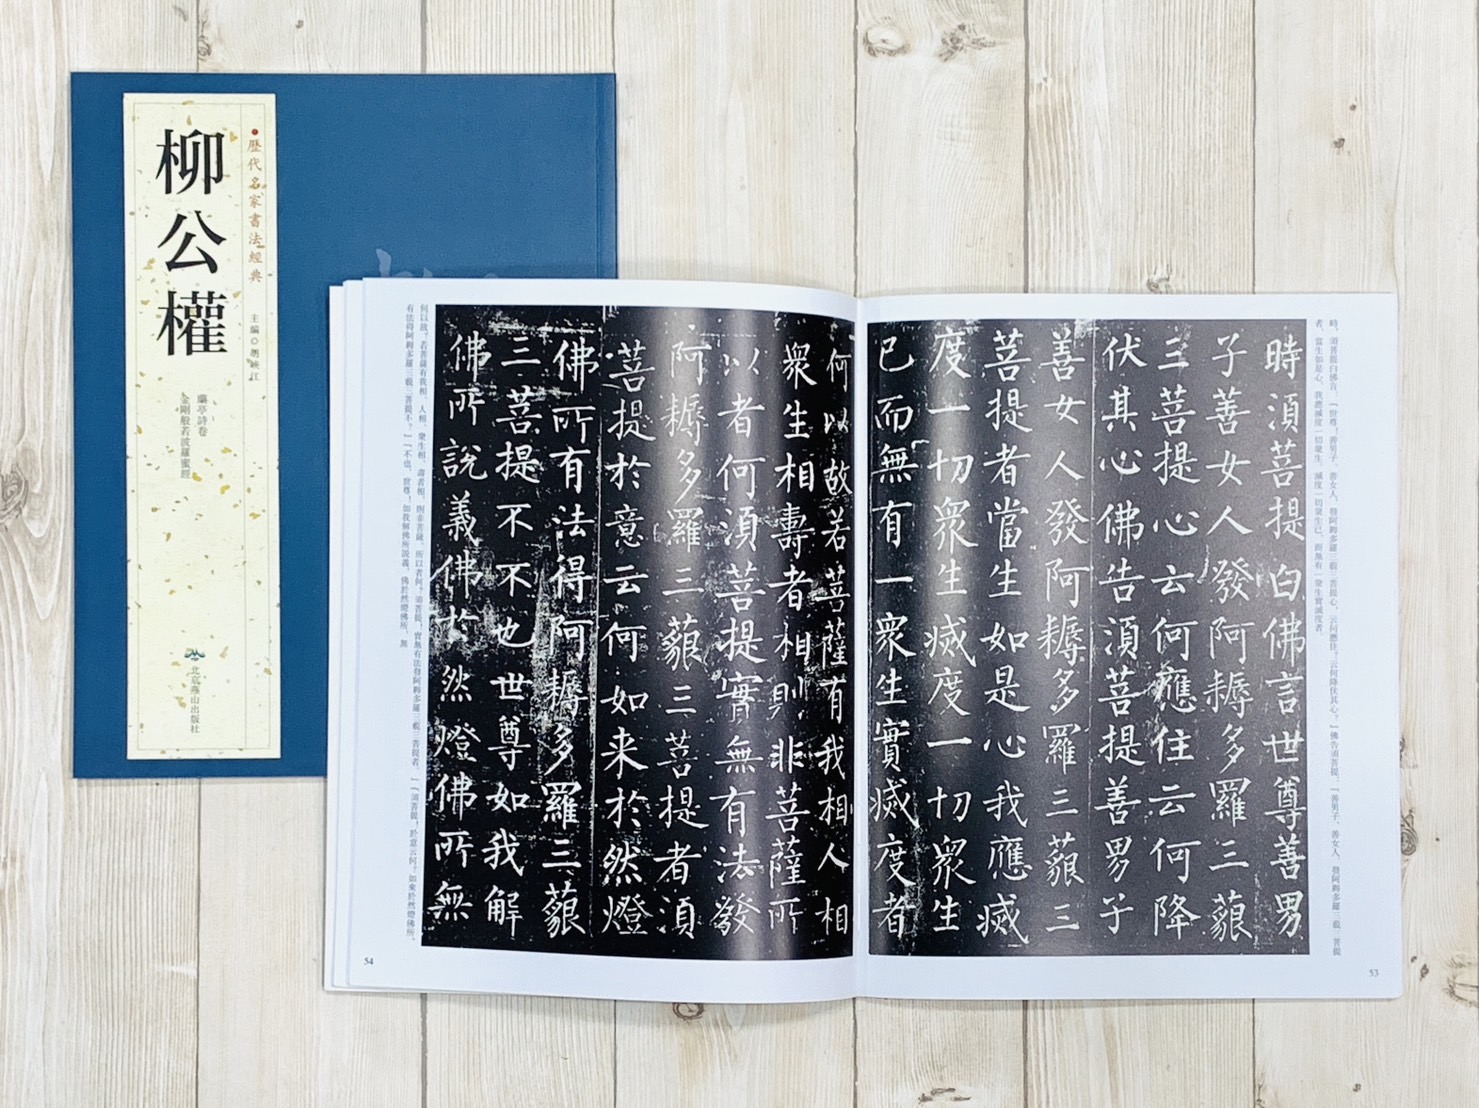 柳公權
歷代名家書法經典
主編◎胡峡江
蘭亭詩卷
金剛般若波羅蜜經
北京燕山出版社
時湏菩提白佛言世尊善男
子善女人發阿耨多羅三藐
三菩提心云何應住云何降
伏其心佛告湏菩提善男子
善女人發阿耨多羅三藐三
菩提者當生如是心我應滅
度一切眾生滅度一切眾生
已而無有一眾生實滅度者
何以故若菩薩有我相人相
眾生相壽者相則非菩薩所
以者何湏菩提實無有法發
阿耨多羅三藐三菩提者湏
菩提於意云何如来於然燈
佛所有法得阿耨多羅三藐
三菩提不不也世尊如我解
佛所說義佛於然燈佛所無
時，須菩提白佛言：「世尊！善男子、善女人，發阿耨多羅三藐三菩提心，云何應住？云何降伏其心？」佛告須菩提：「善男子、善女人，發阿耨多羅三藐三菩提
者，當生如是心，我應滅度一切衆生。滅度一切衆生已，而無有一衆生實滅度者。
何以故？若菩薩有我相、人相、衆生相、壽者相，則非菩薩。所以者何？須菩提！實無有法發阿耨多羅三藐三菩提者。」「須菩提！於意云何？如來於然燈佛所，
有法得阿耨多羅三藐三菩提不？」「不也，世尊！如我解佛所説義，佛於然燈佛所，無
54
53